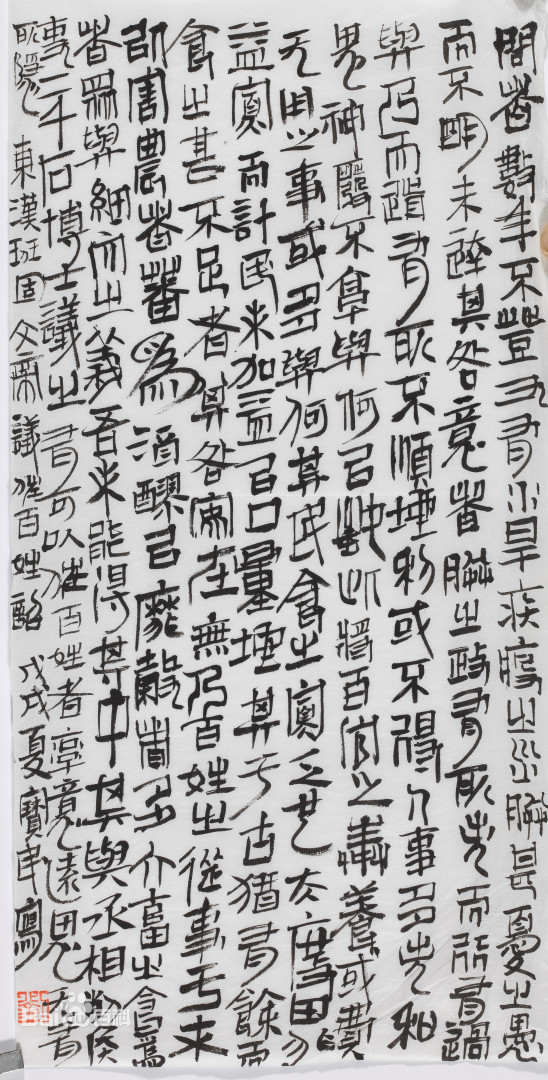 間者數年不登又有水旱疾疫之災朕甚憂之愚
而不明未達其咎意者朕之政有所失而行有過
與乃天道有所不順地利或不得人事多失和
鬼神廢不享與何以致此將百官之奉養或費
无用之事或多與何其民食之寡乏也夫度田非
益寡而計民未加益以口量地其于古猶有餘而
食之甚不足者其咎安在無乃百姓之從事于末
以害農者蕃為酒醪以靡穀者多六畜之食焉
者眾與細大之義吾未能得其中其與丞相列侯
吏二千石博士議之有可以佐百姓者率意遠思无有
所隱 東漢班固文帝議佐百姓詔 戊戌夏寶民寫